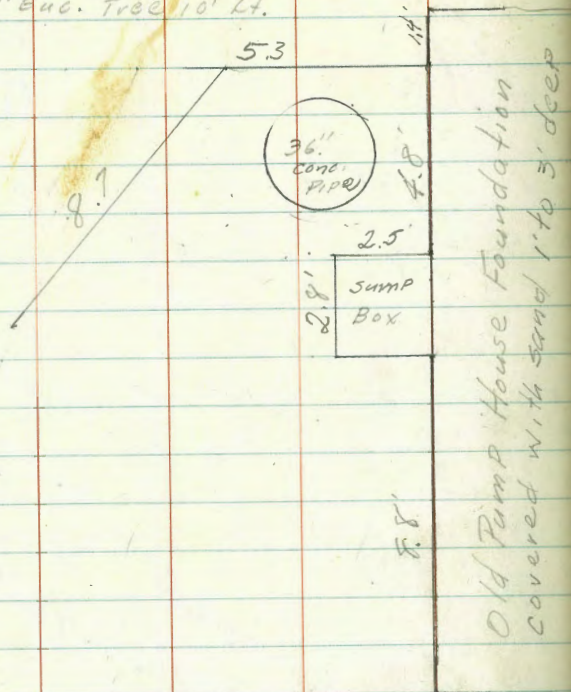 Euc. Tree 10' Lt.
1.4'
5.3
36"
conc.
Pipe
4.8'
8.7
2.5'
2.8'
sump
Box
8.8'
Old Pump House Foundation
covered with sand 1' to 3' deep